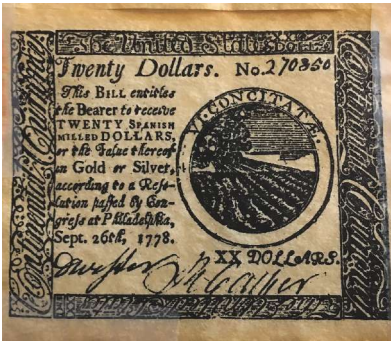 The United States
Twenty Dollars. No. 270350
This BILL entitles
the Bearer to receive
TWENTY SPANISH
MILLED DOLLARS,
or the Value thereof
in Gold or Silver,
according to a Reso-
lution passed by Con-
gress at Philadelphia,
Sept. 26th, 1778.
VI CONCITATE.
XX DOLLARS.
Continental Currency